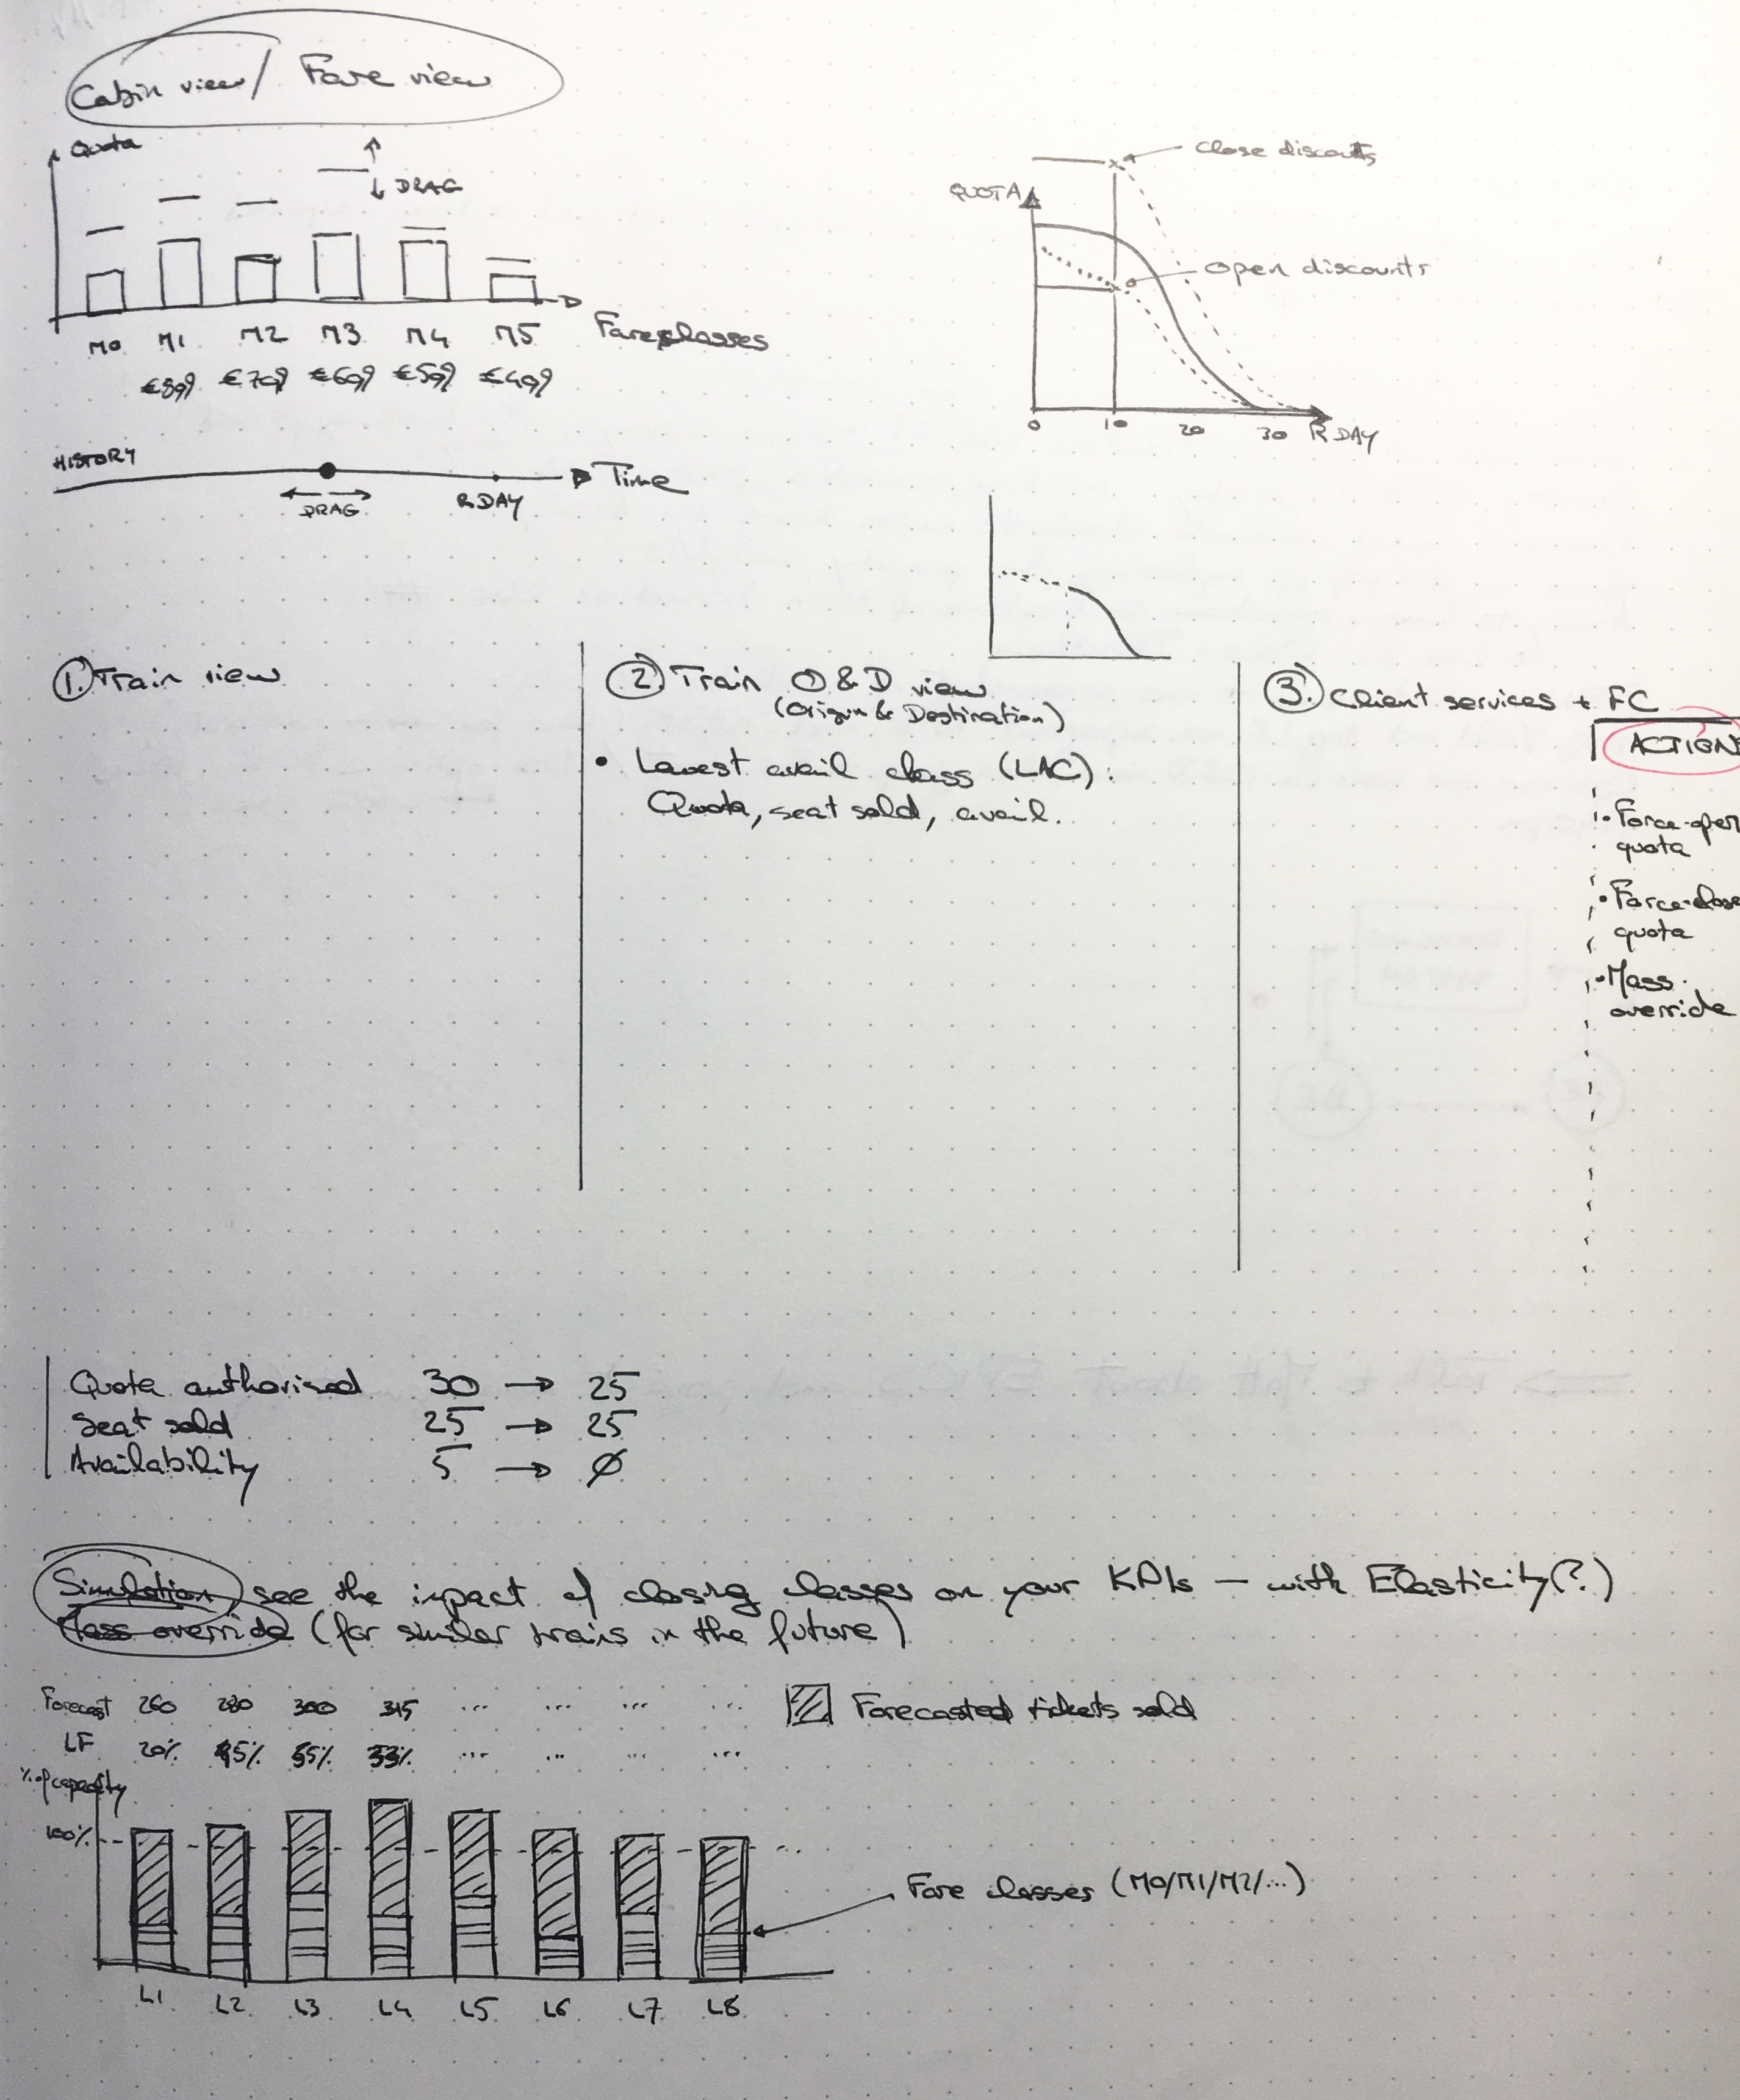 Cabin view / Fare view
Quota
DRAG
M0 M1 M2 M3 M4 M5
Fare classes
€709 €609 €509 €409
HISTORY
DRAG
R DAY
Time
close discounts
QUOTA
open discounts
0 10 20 30 R DAY
1. Train view
2. Train O & D view
(Origin & Destination)
• Lowest avail class (LAC):
Quota, seat sold, avail.
3. Client services + FC
ACTION
• Force-open
quota
• Force-close
quota
• Mass
override
Quota authorised 30 → 25
Seat sold 25 → 25
Availability 5 → Ø
Simulation see the impact of closing classes on your KPIs — with Elasticity(?)
Mass override (for similar trains in the future)
Forecast 260 280 300 315 ... ... ... ...
LF 20% 33% ... ... ... ...
Forecasted tickets sold
% of capacity
100%
Fare classes (M0/M1/M2/...)
L1 L2 L3 L4 L5 L6 L7 L8